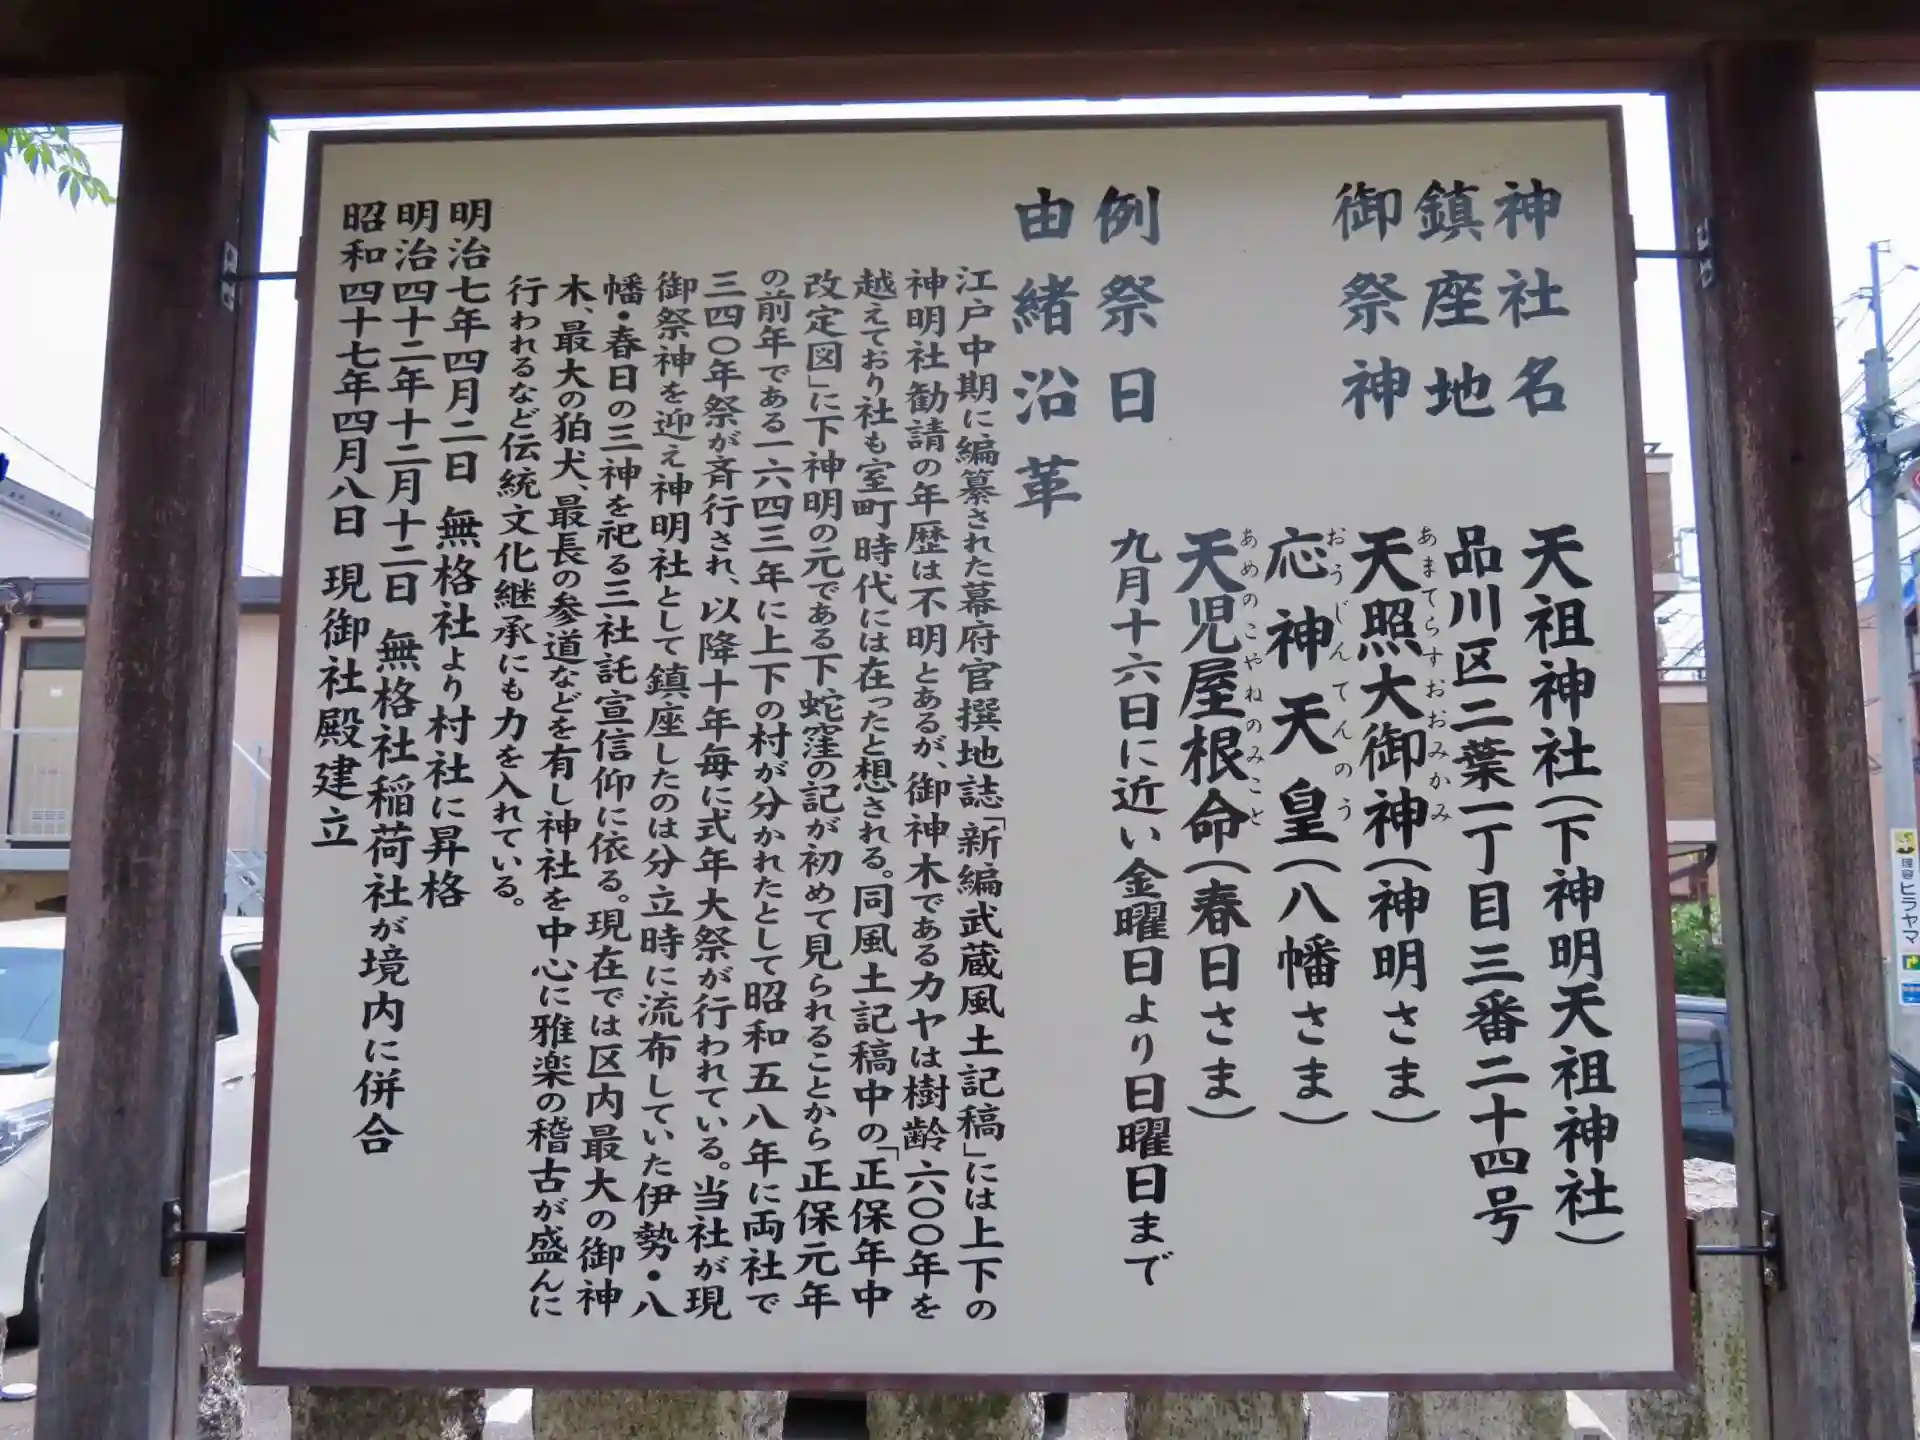 神社名 天祖神社(下神明天祖神社)
鎮座地 品川区二葉一丁目三番二十四号
御祭神 天照大御神(神明さま)
あまてらすおおみかみ
応神天皇(八幡さま)
おうじんてんのう
天児屋根命(春日さま)
あめのこやねのみこと
例祭日 九月十六日に近い金曜日より日曜日まで
由緒沿革
江戸中期に編纂された幕府官撰地誌「新編武蔵風土記稿」には上下の
神明社勧請の年歴は不明とあるが、御神木であるカヤは樹齢六〇〇年を
越えており社も室町時代には在ったと想される。同風土記稿中の「正保年中
改定図」に下神明の元である下蛇窪の記が初めて見られることから正保元年
の前年である一六四三年に上下の村が分かれたとして昭和五八年に両社で
三四〇年祭が斉行され、以降十年毎に式年大祭が行われている。当社が現
御祭神を迎え神明社として鎮座したのは分立時に流布していた伊勢・八
幡・春日の三神を祀る三社託宣信仰に依る。現在では区内最大の御神
木、最大の狛犬、最長の参道などを有し神社を中心に雅楽の稽古が盛んに
行われるなど伝統文化継承にも力を入れている。
明治七年四月二日 無格社より村社に昇格
明治四十二年十二月十二日 無格社稲荷社が境内に併合
昭和四十七年四月八日 現御社殿建立
理容ヒラヤマ